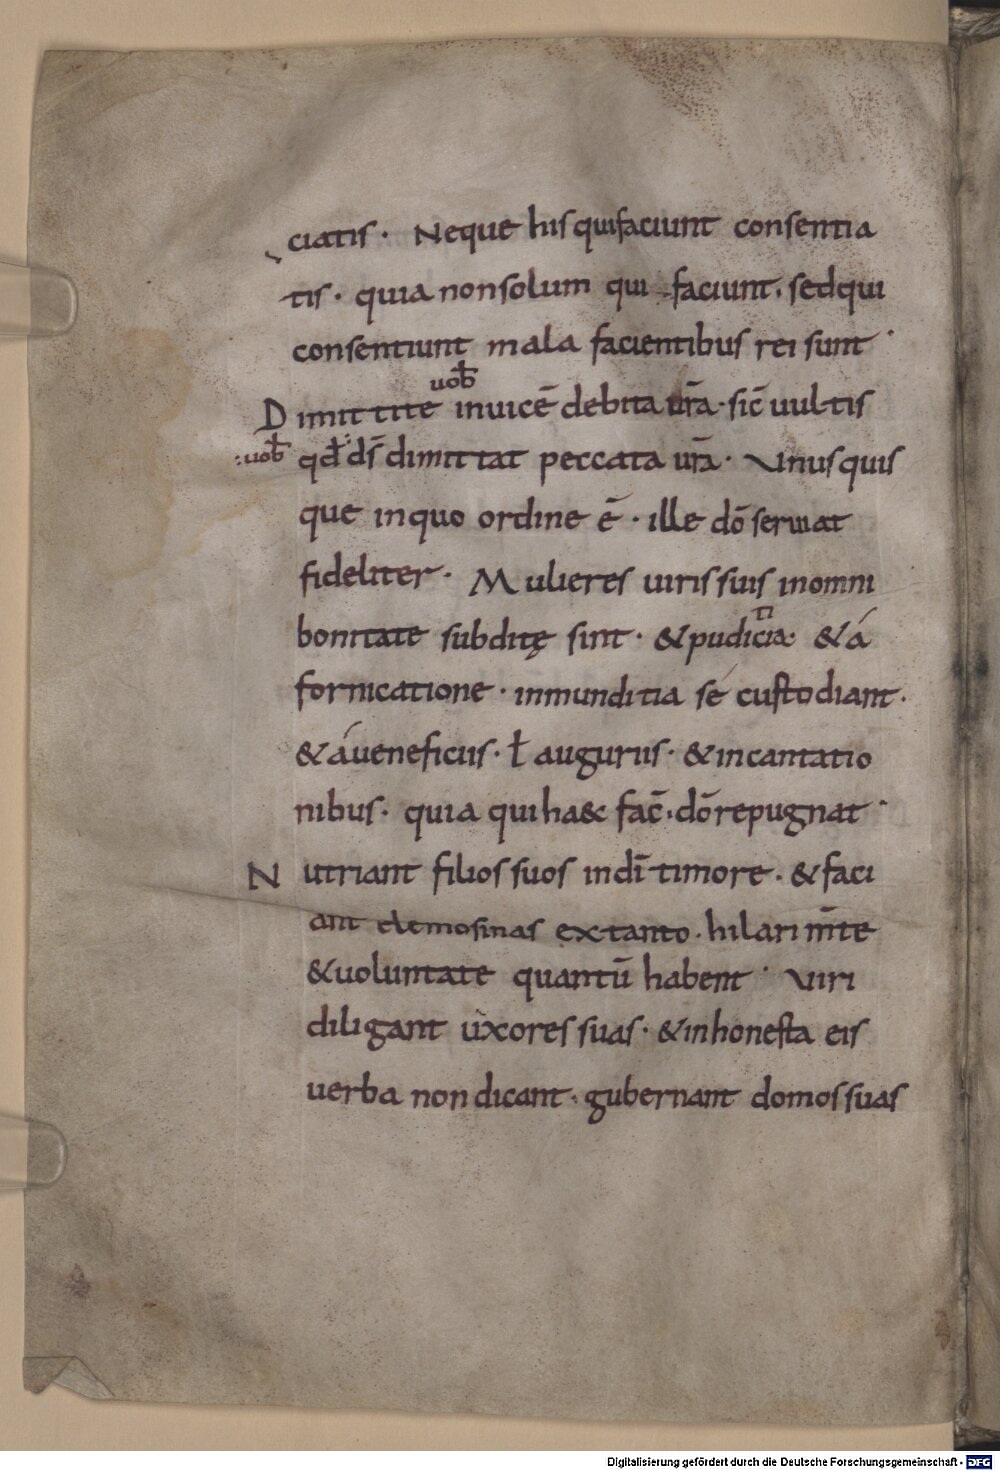 ciatis · Neque his qui faciunt consentia
tis · quia non solum qui faciunt · sed qui
consentiunt mala facientibus rei sunt ·
uob̄
Dimittite inuicē debita ur̄a · sic̄ uultis
: uob̄ qd̄ : ds̄ dimittat peccata ur̄a · Vnusquis
que in quo ordine ē · ille dō seruiat
fideliter · Mulieres uiris suis in omni
bonitate subditę sint · & pudicia · & á
ti
fornicatione · inmunditia sé custodiant ·
& á ueneficiis · ł auguriis · & incantatio
nibus · quia qui ha& fac̄ · dō repugnat ·
Nutriant filios suos in dī timore · & faci
ant elemosinas ex tanto · hilari m̄te
& uoluntate quantū habent · Viri
diligant uxores suas · & inhonesta eis
uerba non dicant · gubernant domos suas
Digitalisierung gefördert durch die Deutsche Forschungsgemeinschaft - DFG